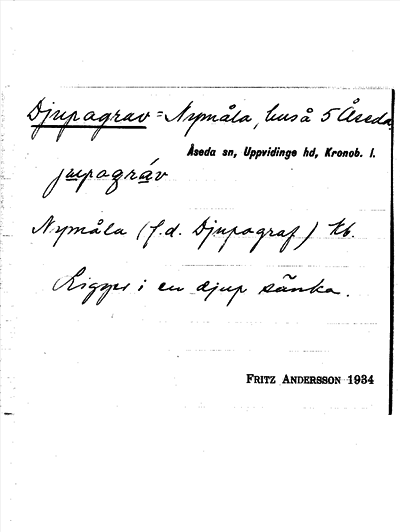 Djupagrav = Nymåla, hus å 5 Åseda.
Åseda sn, Uppvidinge hd, Kronob. l.
jupagráv
Nymåla (f.d. Djupagraf) Kb.
Ligger i en djup sänka.
FRITZ ANDERSSON 1934